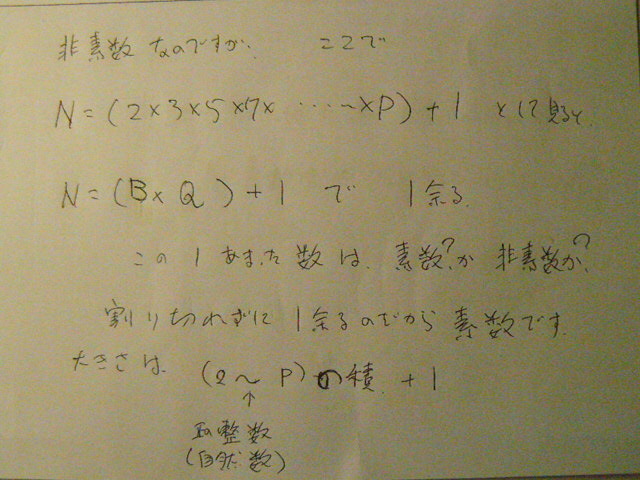 非素数 なのですが、 ここで
N=(2×3×5×7× ……×P)+1 として見ると
N=(B×Q)+1 で 1余る
この 1あまった 数は、素数?か 非素数か?
割り切れずに 1余るのだから 素数です。
大きさは、(2〜P)の積 +1
↑
正整数
(自然数)